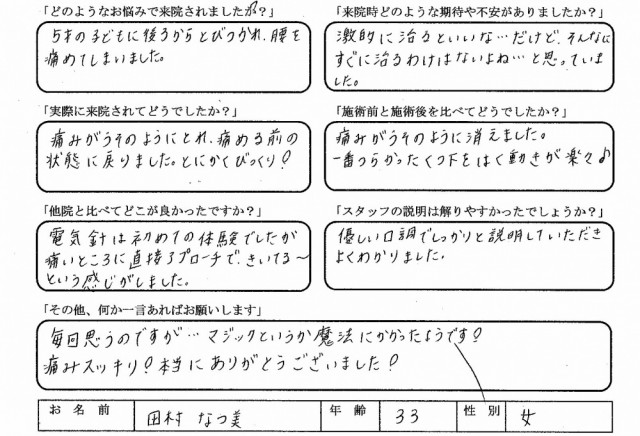 「どのようなお悩みで来院されましたか？」
5才の子どもに後ろからとびつかれ、腰を
痛めてしまいました。
「来院時どのような期待や不安がありましたか？」
激的に治るといいな…だけど、そんなに
すぐに治るわけはないよね…と思っていま
した。
「実際に来院されてどうでしたか？」
痛みがうそのようにとれ、痛める前の
状態に戻りました。とにかくびっくり！
「施術前と施術後を比べてどうでしたか？」
痛みがうそのように消えました。
一番つらかったくつ下をはく動きが楽々♪
「他院と比べてどこが良かったですか？」
電気針は初めての体験でしたが
痛いところに直接アプローチで、きいてる～
という感じがしました。
「スタッフの説明は解りやすかったでしょうか？」
優しい口調でしっかりと説明していただき
よくわかりました。
「その他、何か一言あればお願いします」
毎回思うのですが…マジックというか魔法にかかったようです！
痛みスッキリ！本当にありがとうございました！
お名前 田村 なつ美 年齢 33 性別 女